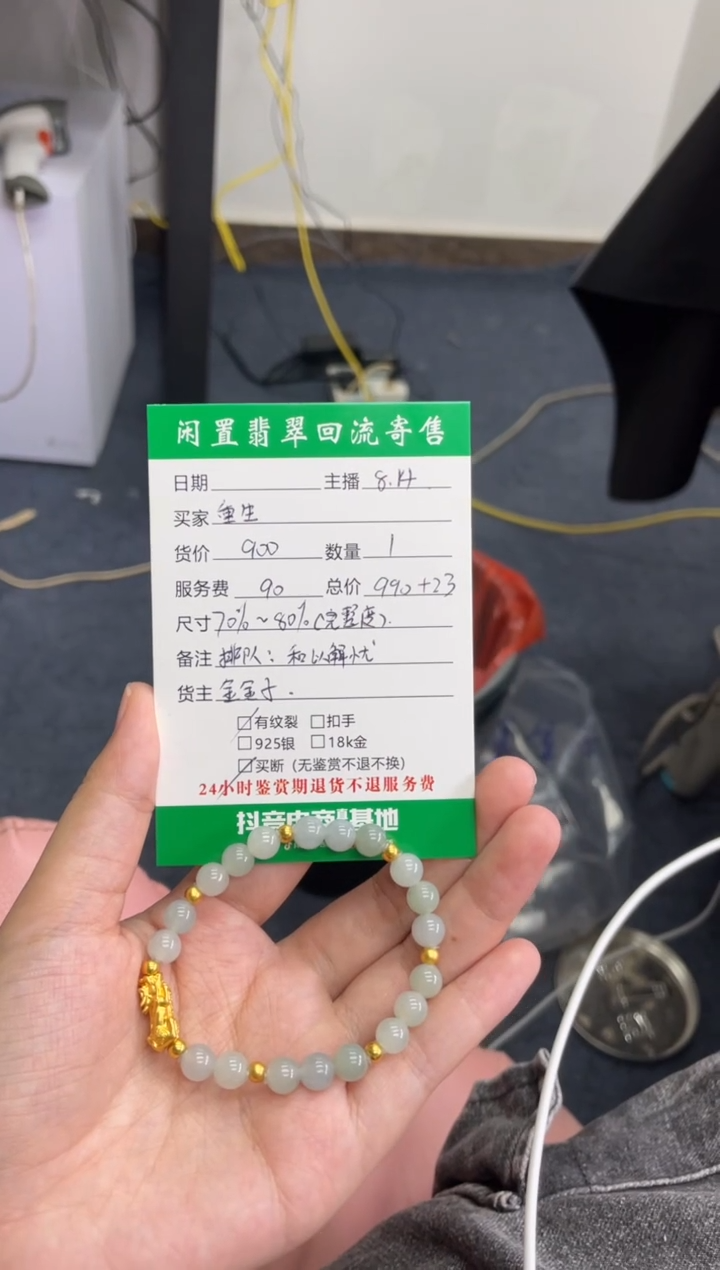 闲置翡翠回流寄售
日期 主播 8.14
买家 重生
货价 900 数量 1
服务费 90 总价 990+23
尺寸 70%~80%(完整度).
备注 排队：和以解忧
货主 金金子.
有纹裂 扣手
925银 18k金
买断（无鉴赏不退不换）
24小时鉴赏期退货不退服务费
抖音电商 基地